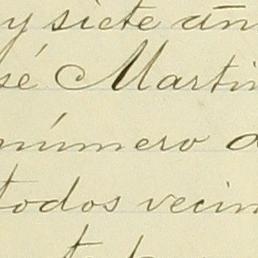 y siete añ
sé Martin
número d
todos vecin